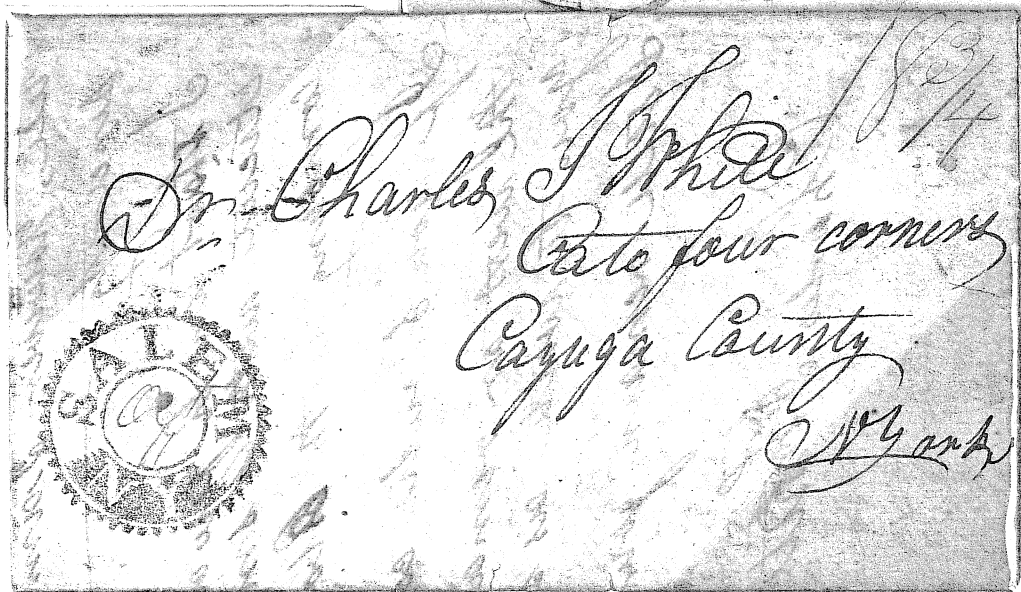 18 3/4
Dr. Charles I White
Cato four corners
Cayuga County
N York
SALEM
N.Y.